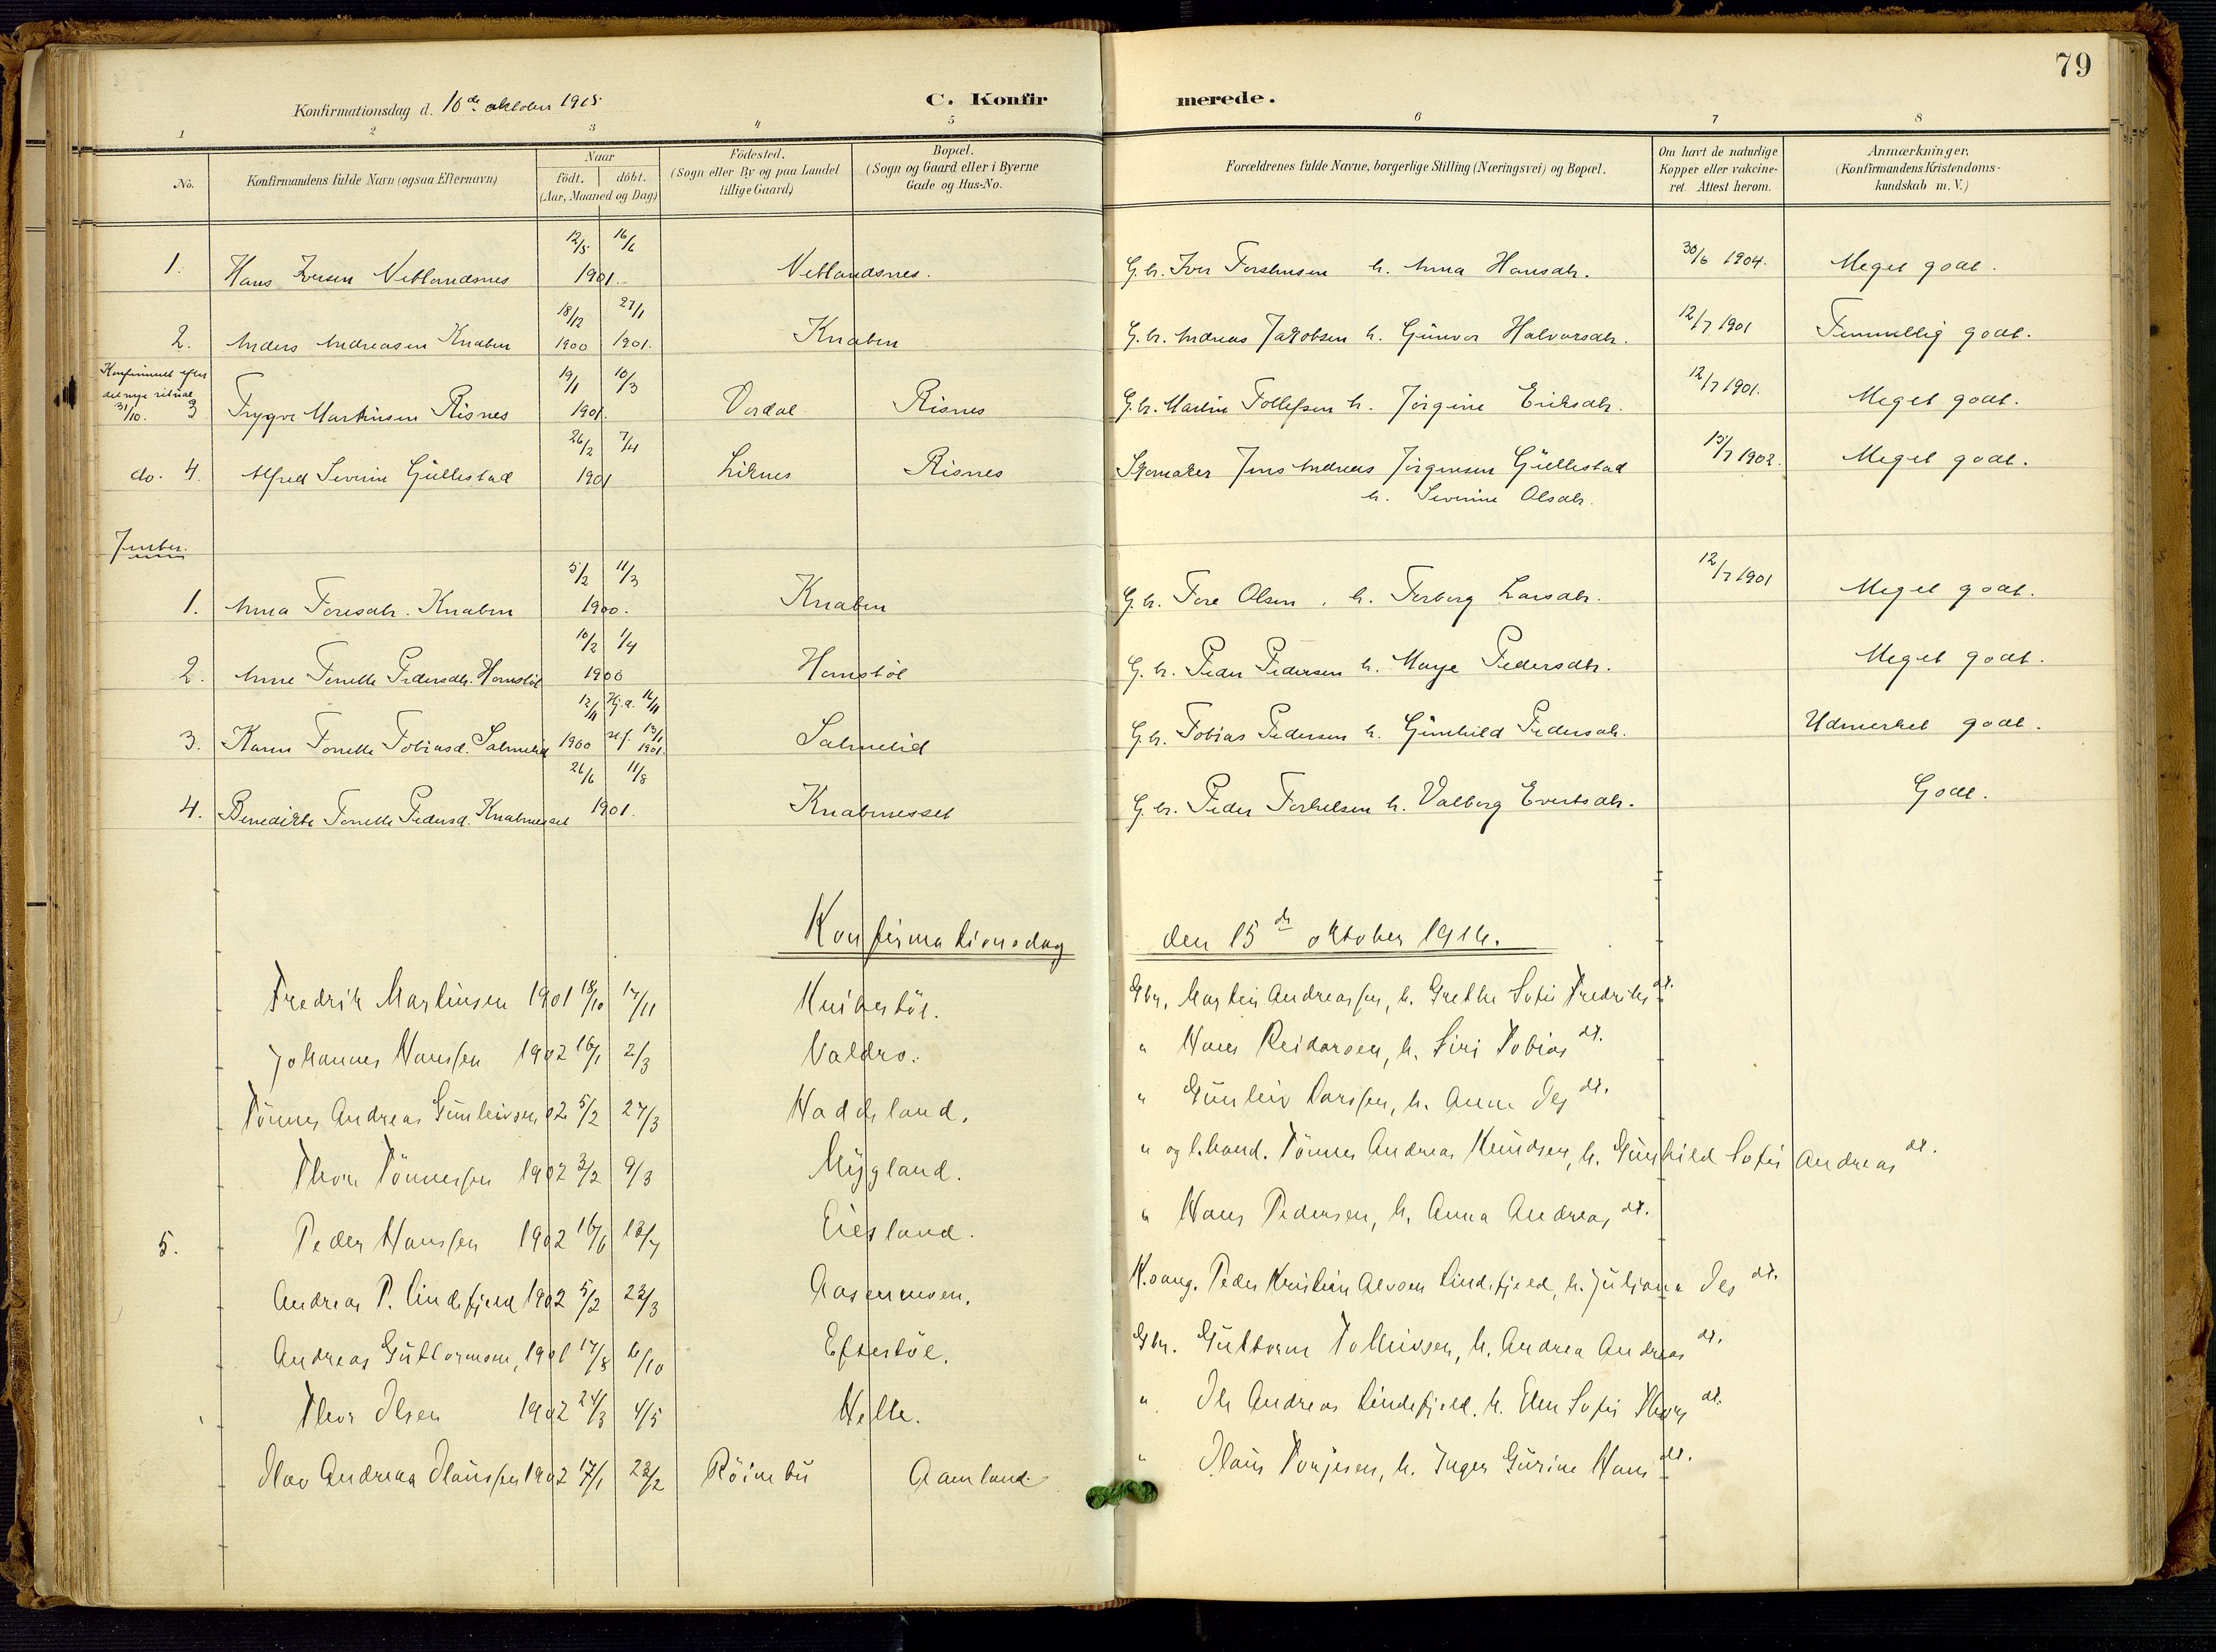 79
Konfirmationsdag d. 10de oktober 1915.
C. Konfirmerede.
1 2 3 4 5 6 7 8
No.
Konfirmandens fulde Navn (ogsaa Efternavn)
Naar
født. | døbt.
(Aar, Maaned og Dag)
Fødested.
(Sogn eller By og paa Landet
tillige Gaard)
Bopæl.
(Sogn og Gaard eller i Byerne
Gade og Hus-No.
Forældrenes fulde Navne, borgerlige Stilling (Næringsvei) og Bopæl.
Om havt de naturlige
Kopper eller vakcine-
ret. Attest herom.
Anmærkninger.
(Konfirmandens Kristendoms-
kundskab m. V.)
1. Hans Iversen Netlandsnes 12/5 16/6 1901. Netlandsnes. G.br. Iver h. Anna Hansdtr. 30/6 1904. Meget godt.
2. Anders Andreasen Knaben 18/12 1900 27/1 1901. Knaben G.br. Andreas Jakobsen h. Gunvor Halvorsdtr. 12/7 1901 Temmelig godt.
Konfirmeret efter
det nye ritual
31/10. 3 Trygve Martinsen Risnes 19/1 10/3 1901. Risnes G.br. Martin Tollefsen h. Jørgine Eriksdtr. 12/7 1901. Meget godt.
do. 4. Alfred Severin Gullestad 26/2 7/4 1901 Liknes Risnes Skomaker Jens Andreas Jörgensen Gullestad 15/7 1902. Meget godt.
h. Severine Olsdtr.
1. Anna Toresdtr. Knaben 5/2 11/3 1900. Knaben G.br. Tore Olsen, h. Torborg Larsdtr. 12/7 1901 Meget godt.
2. Anne Tonette Pedersdtr. Homstøl 10/2 1/4 1900 Homstøl G.br. Peder Pedersen h. Pedersdtr. Meget godt.
3. Karen Tonette Tobiasd. Salmelid 12/11 1900 Hj.d. 16/11 13/1 1901. Salmelid G.br. Tobias Pedersen h. Gunhild Pedersdtr. Udmerket godt.
4. Benedikte Tonette Pedersd. Knabenesset 26/6 11/8 1901. Knabenesset G.br. Peder Torkelsen h. Valborg Evertsdtr. Godt.
Konfirmationsdag den 15de oktober 1916.
Fredrik Martinsen 1901 18/10 17/11 Gbr. Martin Andreassen, h. Grethe Sofie Fredriksdt.
Johannes Hanssen 1902 16/1 2/3 Valdro. " Hans Reidarsen, h. Siri Tobiasdt.
Tönnes Andreas Gunleivsen 02 5/2 27/3 Haddeland. " Gunleiv Larssen, h. Anne dt.
Thore Tönnessen 1902 3/2 9/3 Mygland. " og l.hand. Tönnes Andreas Knudsen, h. Gunhild Sofie Andreasdt.
5. Peder Hanssen 1902 16/6 13/7 Eiesland. " Hans Pedersen, h. Anna Andreasdt.
Andreas P. Lindefjeld 1902 5/2 23/3 K.sang. Peder Kristian Lindefjeld, h. Juliana dt.
Andreas Guttormsen, 1901 17/8 6/10 Eftestöl. Gbr. Guttorm Tolleivsen, h. Andrea Andreasdt.
Thor Olsen 1902 24/3 4/5 Helle. " Ole Andreas Lindefjeld. h. Elen Sofie Thorsdt.
Olav Andreas Olaussen 1902 17/1 23/2 Aamland " Olaus Tonjesen, h. Inger Gurine Hansdt.